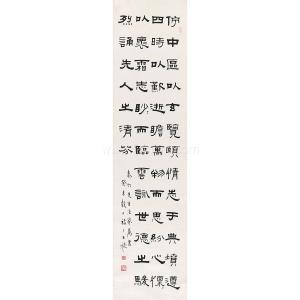 佇中區以玄覽頤情志于典墳遵
四時以歎逝瞻萬物而思紛心懍
以懷霜志眇而臨雲詠世德之駿
烈誦先人之清芬